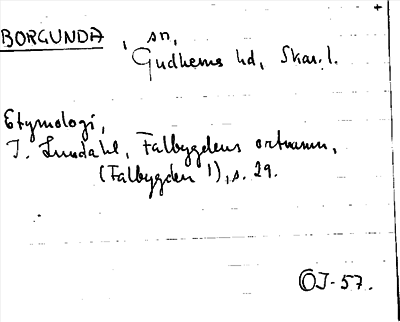 BORGUNDA, sn,
Gudhems hd, Skar. l.
Etymologi,
I. Lundahl, Falbygdens ortnamn,
(Falbygden 1), s. 29.
OJ-57.